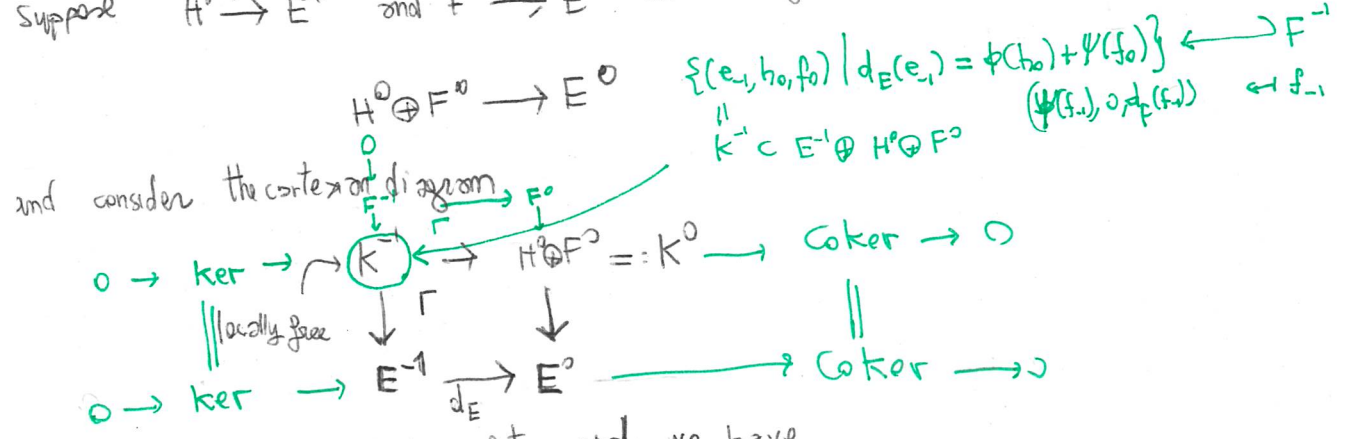 Suppose H → E and F → E
{(e₋₁, h₀, f₀) | d_E(e₋₁) = ϕ(h₀) + ψ(f₀)} ↩ F⁻¹
H⁰ ⊕ F⁰ → E⁰
(ψ(f₋₁), 0, d_F(f₋₁)) ↤ f₋₁
0 ||
K⁻¹ ⊂ E⁻¹ ⊕ H⁰ ⊕ F⁰
and consider the cartesian diagram
F⁻¹ → F⁰
0 → ker → K⁻¹ → H⁰⊕F⁰ =: K⁰ → Coker → 0
locally free Γ
0 → ker → E⁻¹ → E⁰ → Coker → 0
d_E
we have